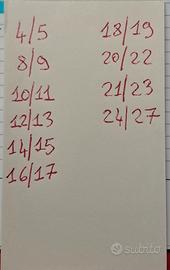 4/5
8/9
10/11
12/13
14/15
16/17
18/19
20/22
21/23
24/27
subito